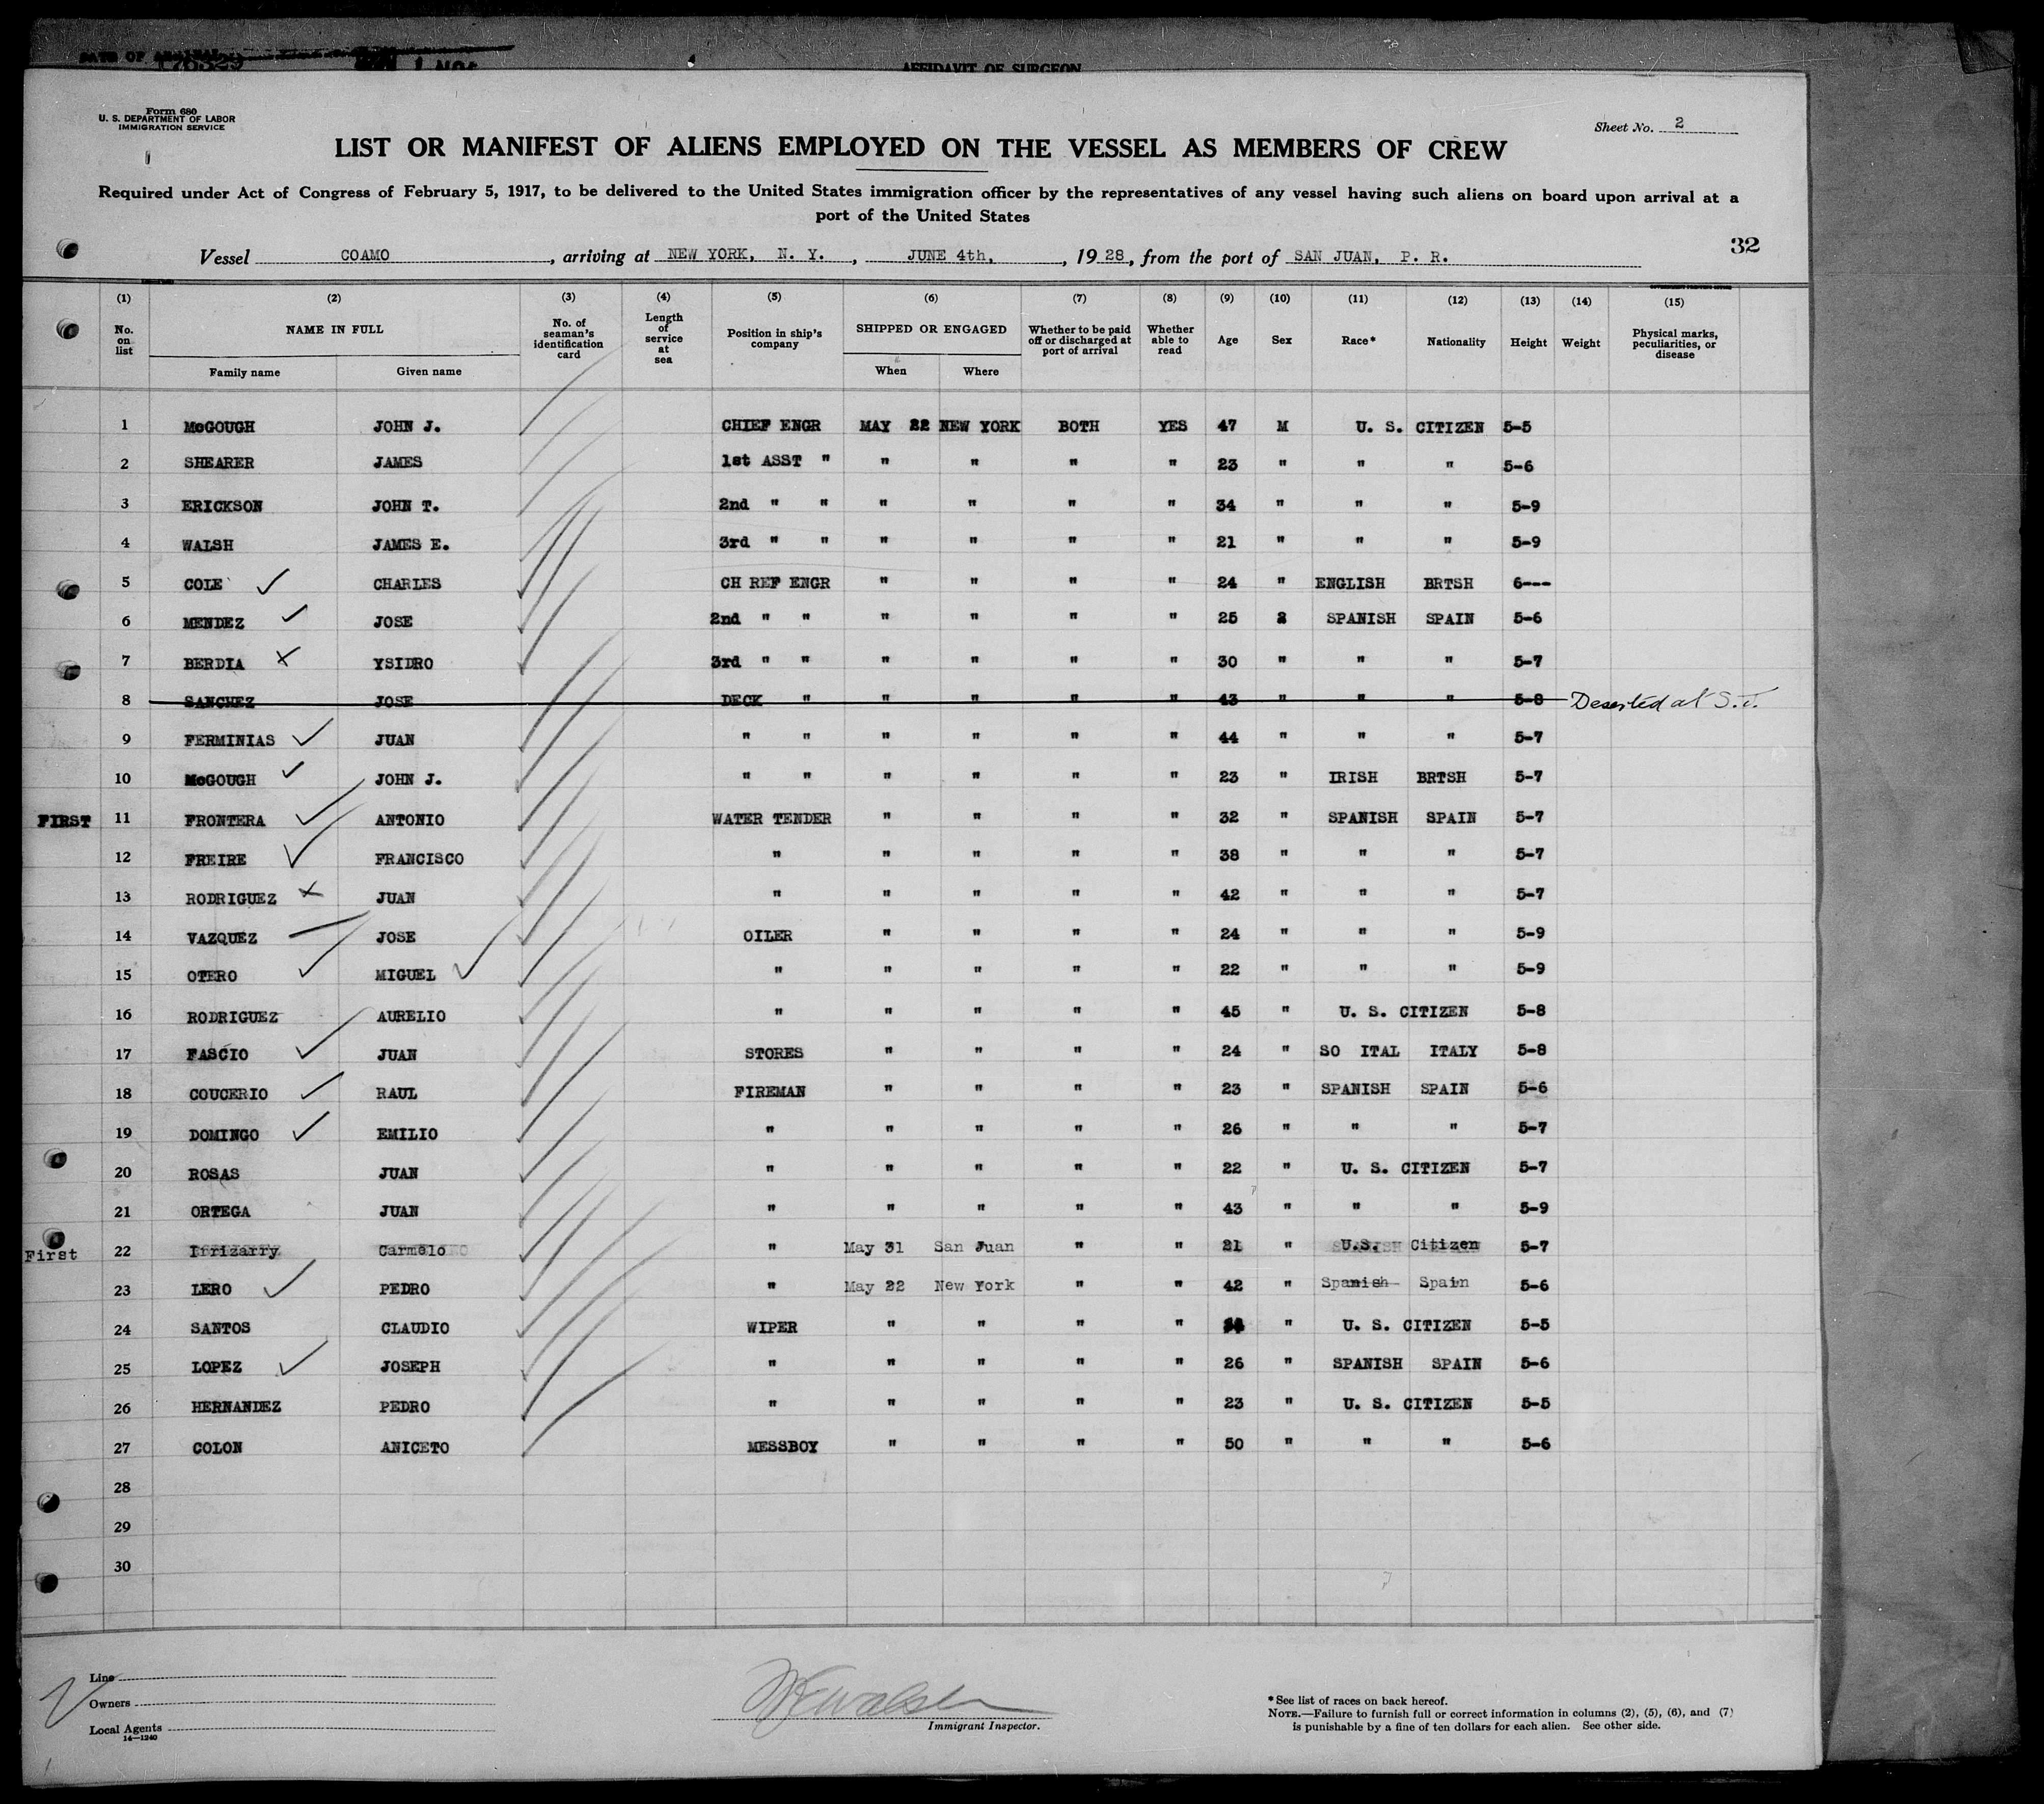 DATE OF
AFFIDAVIT OF SURGEON
Form 680
U. S. DEPARTMENT OF LABOR
IMMIGRATION SERVICE
Sheet No. 2
LIST OR MANIFEST OF ALIENS EMPLOYED ON THE VESSEL AS MEMBERS OF CREW
Required under Act of Congress of February 5, 1917, to be delivered to the United States immigration officer by the representatives of any vessel having such aliens on board upon arrival at a
port of the United States
32
Vessel COAMO, arriving at NEW YORK, N. Y., JUNE 4th, , 1928, from the port of SAN JUAN, P. R.
(1) (2) (3) (4) (5) (6) (7) (8) (9) (10) (11) (12) (13) (14) (15)
No. on list NAME IN FULL No. of seaman's identification card Length of service at sea Position in ship's company SHIPPED OR ENGAGED Whether to be paid off or discharged at port of arrival Whether able to read Age Sex Race* Nationality Height Weight Physical marks, peculiarities, or disease
Family name Given name When Where
1 McGOUGH JOHN J. CHIEF ENGR MAY 22 NEW YORK BOTH YES 47 M U. S. CITIZEN 5-5
2 SHEARER JAMES 1st ASST " " " " " 23 " " " 5-6
3 ERICKSON JOHN T. 2nd " " " " " " 34 " " " 5-9
4 WALSH JAMES E. 3rd " " " " " " 21 " " " 5-9
5 COLE CHARLES CH REF ENGR " " " " 24 " ENGLISH BRTSH 6---
6 MENDEZ JOSE 2nd " " " " " " 25 SPANISH SPAIN 5-6
7 BERDIA YSIDRO 3rd " " " " " " 30 " " " 5-7
8 SANCHEZ JOSE DECK " " " " " 43 " " " 5-8 Deserted at S.J.
9 FERMINIAS JUAN " " " " " " 44 " " " 5-7
10 McGOUGH JOHN J. " " " " " " 23 " IRISH BRTSH 5-7
FIRST 11 FRONTERA ANTONIO WATER TENDER " " " " 32 " SPANISH SPAIN 5-7
12 FREIRE FRANCISCO " " " " " 38 " " " 5-7
13 RODRIGUEZ JUAN " " " " " 42 " " " 5-7
14 VAZQUEZ JOSE OILER " " " " 24 " " " 5-9
15 OTERO MIGUEL " " " " " 22 " " " 5-9
16 RODRIGUEZ AURELIO " " " " " 45 " U. S. CITIZEN 5-8
17 FASCIO JUAN STORES " " " " 24 " SO ITAL ITALY 5-8
18 COUCERIO RAUL FIREMAN " " " " 23 " SPANISH SPAIN 5-6
19 DOMINGO EMILIO " " " " " 26 " " " 5-7
20 ROSAS JUAN " " " " " 22 " U. S. CITIZEN 5-7
21 ORTEGA JUAN " " " " " 43 " " " 5-9
First 22 Irrizarry Carmelo " May 31 San Juan " " 21 " U.S. Citizen 5-7
23 LERO PEDRO " May 22 New York " " 42 " Spanish Spain 5-6
24 SANTOS CLAUDIO WIPER " " " " " U. S. CITIZEN 5-5
25 LOPEZ JOSEPH " " " " " 26 " SPANISH SPAIN 5-6
26 HERNANDEZ PEDRO " " " " " 23 " U. S. CITIZEN 5-5
27 COLON ANICETO MESSBOY " " " " 50 " " " 5-6
28
29
30
Line
Owners
Local Agents
14—1240
Walsh
Immigrant Inspector.
* See list of races on back hereof.
NOTE.—Failure to furnish full or correct information in columns (2), (5), (6), and (7)
is punishable by a fine of ten dollars for each alien. See other side.